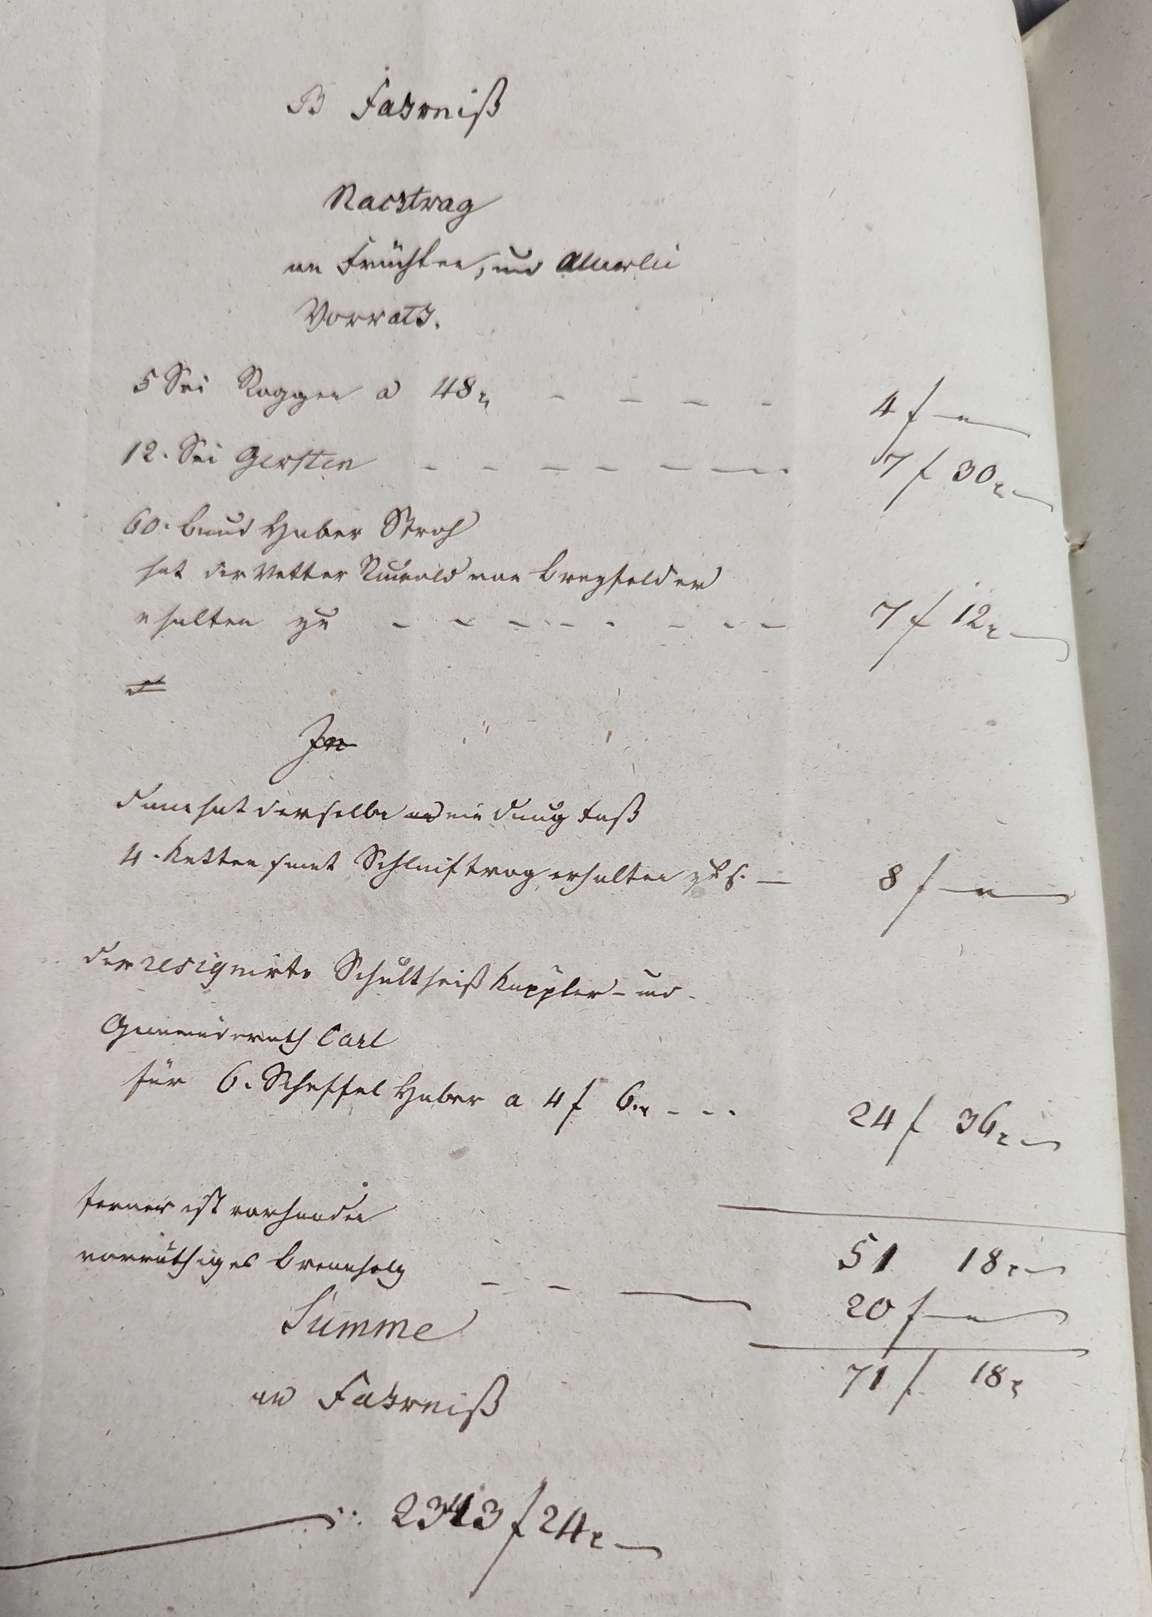 B Fahrniß
Nachtrag
an Früchten, und allerlei
Vorrath.
5 Sri Roggen a 48 x - - - - 4 f —
12. Sri Gersten - - - - - - - 7 f 30 x
60. bund Haber Stroh
hat der Vetter von
erhalten zu - - - - - - - - 7 f 12 x
In
dann hat derselbe ein dung faß
4. Ketten samt Schleiftrog erhalten — 8 f —
der resignirte Schultheiß Kappler - und -
Gemeinderath Carl
für 6. Scheffel Haber a 4 f 6 x - - - 24 f 36 x
ferner ist vorhanden
51 18 x
vorräthiges brennholz - - — 20 f —
Summe 71 f 18 x
an Fahrniß
2343 f 24 x